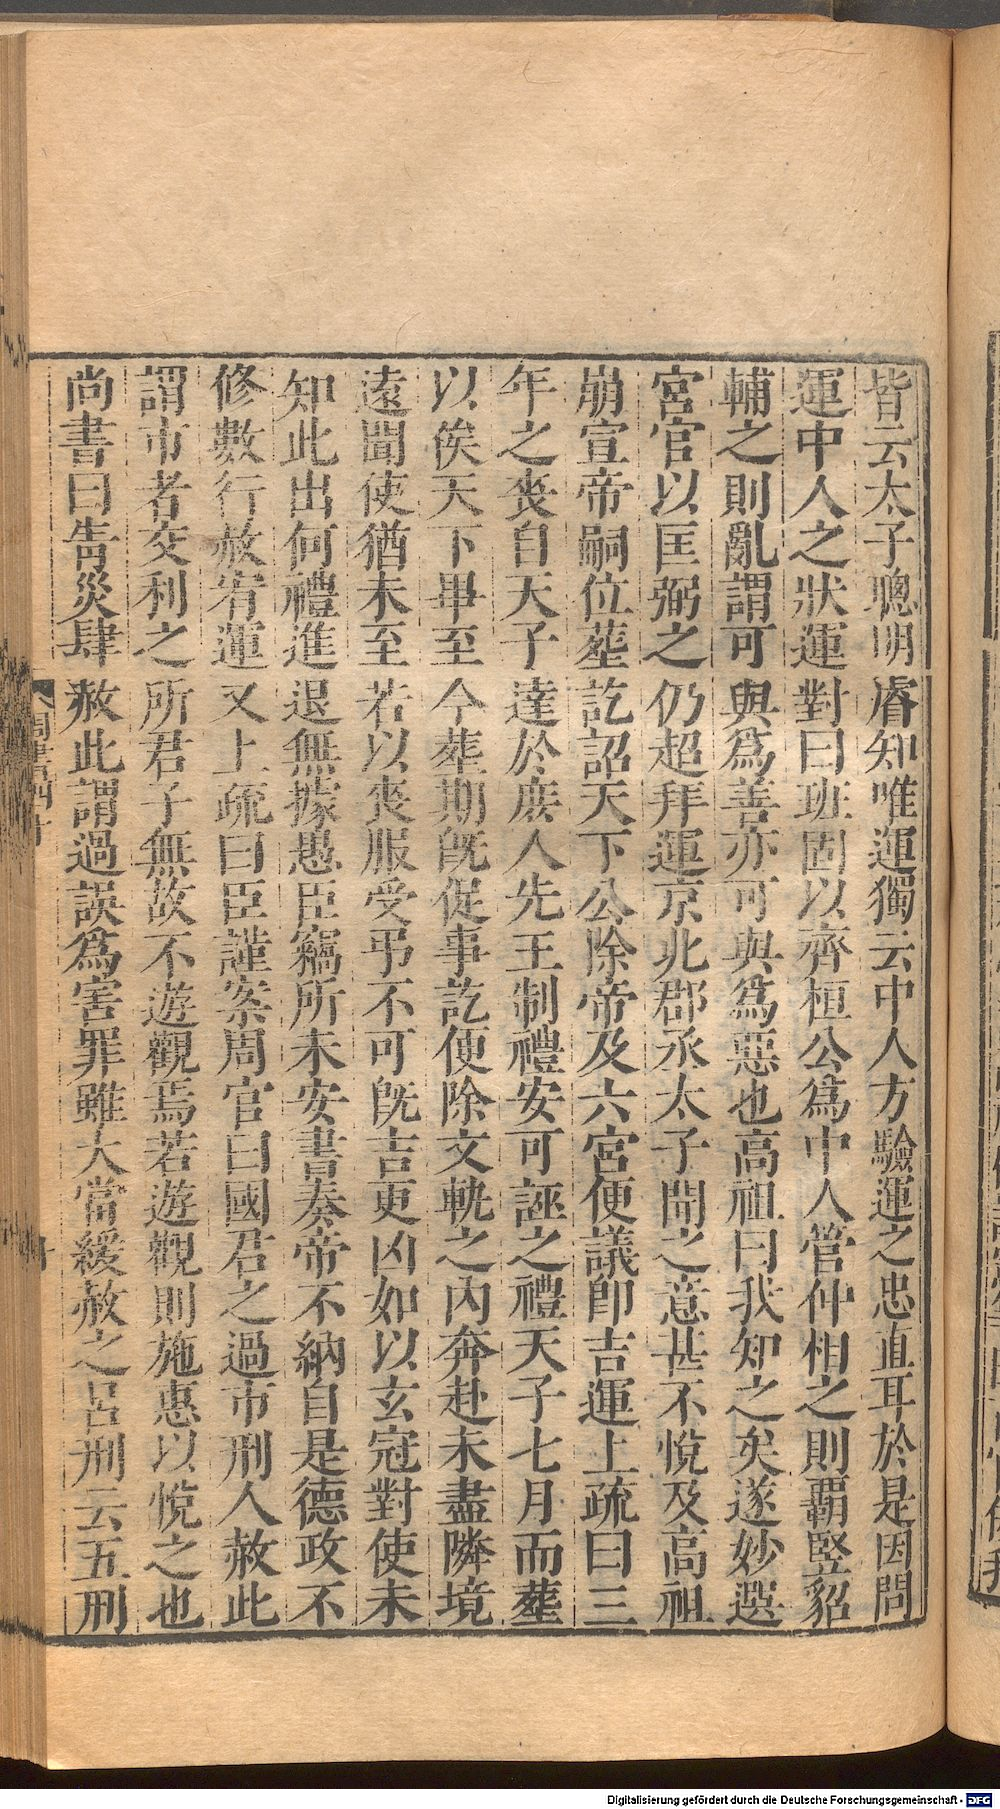 皆云太子聰明睿知唯運獨云中人方驗運之忠直耳於是因問
運中人之狀運對曰班固以齊桓公爲中人管仲相之則霸竪貂
輔之則亂謂可與爲善亦可與爲惡也高祖曰我知之矣遂妙選
宮官以匡弼之仍超拜運京兆郡丞太子聞之意甚不悅及高祖
崩宣帝嗣位葬訖詔天下公除帝及六宮便議即吉運上疏曰三
年之喪自天子達於庶人先王制禮安可誣之禮天子七月而葬
以俟天下畢至今葬期旣促事訖便除文軌之內奔赴未盡隣境
遠聞使猶未至若以喪服受弔不可旣吉更凶如以玄冠對使未
知此出何禮進退無據愚臣竊所未安書奏帝不納自是德政不
修數行赦宥運又上疏曰臣謹案周官曰國君之過市刑人赦此
謂市者交利之所君子無故不遊觀焉若遊觀則施惠以悅之也
尚書曰眚災肆赦此謂過誤爲害罪雖大當緩赦之呂刑云五刑
Digitalisierung gefördert durch die Deutsche Forschungsgemeinschaft - DFG